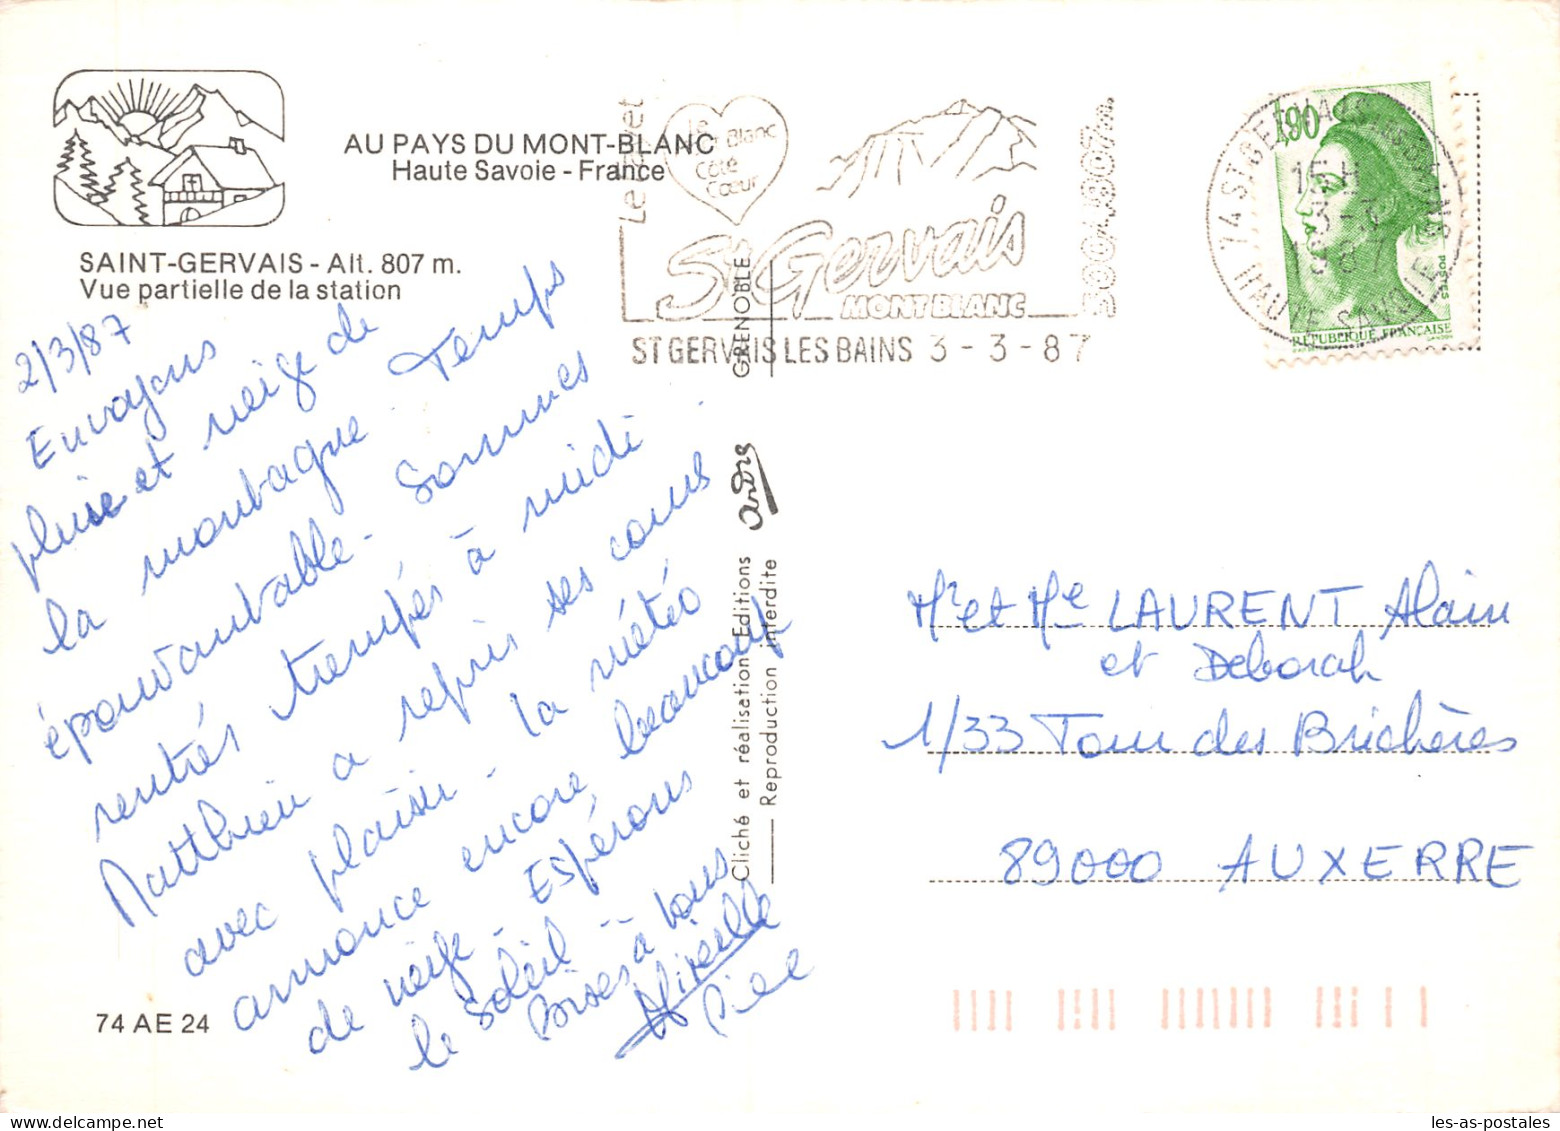 AU PAYS DU MONT-BLANC
Haute Savoie - France
SAINT-GERVAIS - Alt. 807 m.
Vue partielle de la station
2/3/87
Envoyons
pluie et neige de
la montagne. Temps
épouvantable - Sommes
rentrés trempés à midi.
Matthieu a repris ses cours
avec plaisir - la météo
annonce encore beaucoup
de neige - Espérons
le soleil --
Bises à tous
Mireille
74 AE 24
Le
Mont Blanc
Côté
Cœur
St Gervais
MONT BLANC
ST GERVAIS LES BAINS 3 - 3 - 87
GRENOBLE
andre
Cliché et réalisation Editions
Reproduction interdite
1,90
POSTES
REPUBLIQUE FRANÇAISE
74 ST GERVAIS LES BAINS
15 H
3 - 3
1987
HAUTE SAVOIE
Mr et Me LAURENT Alain
et Deborah
1/33 Tour des Brichères
89000 AUXERRE
les-as-postales